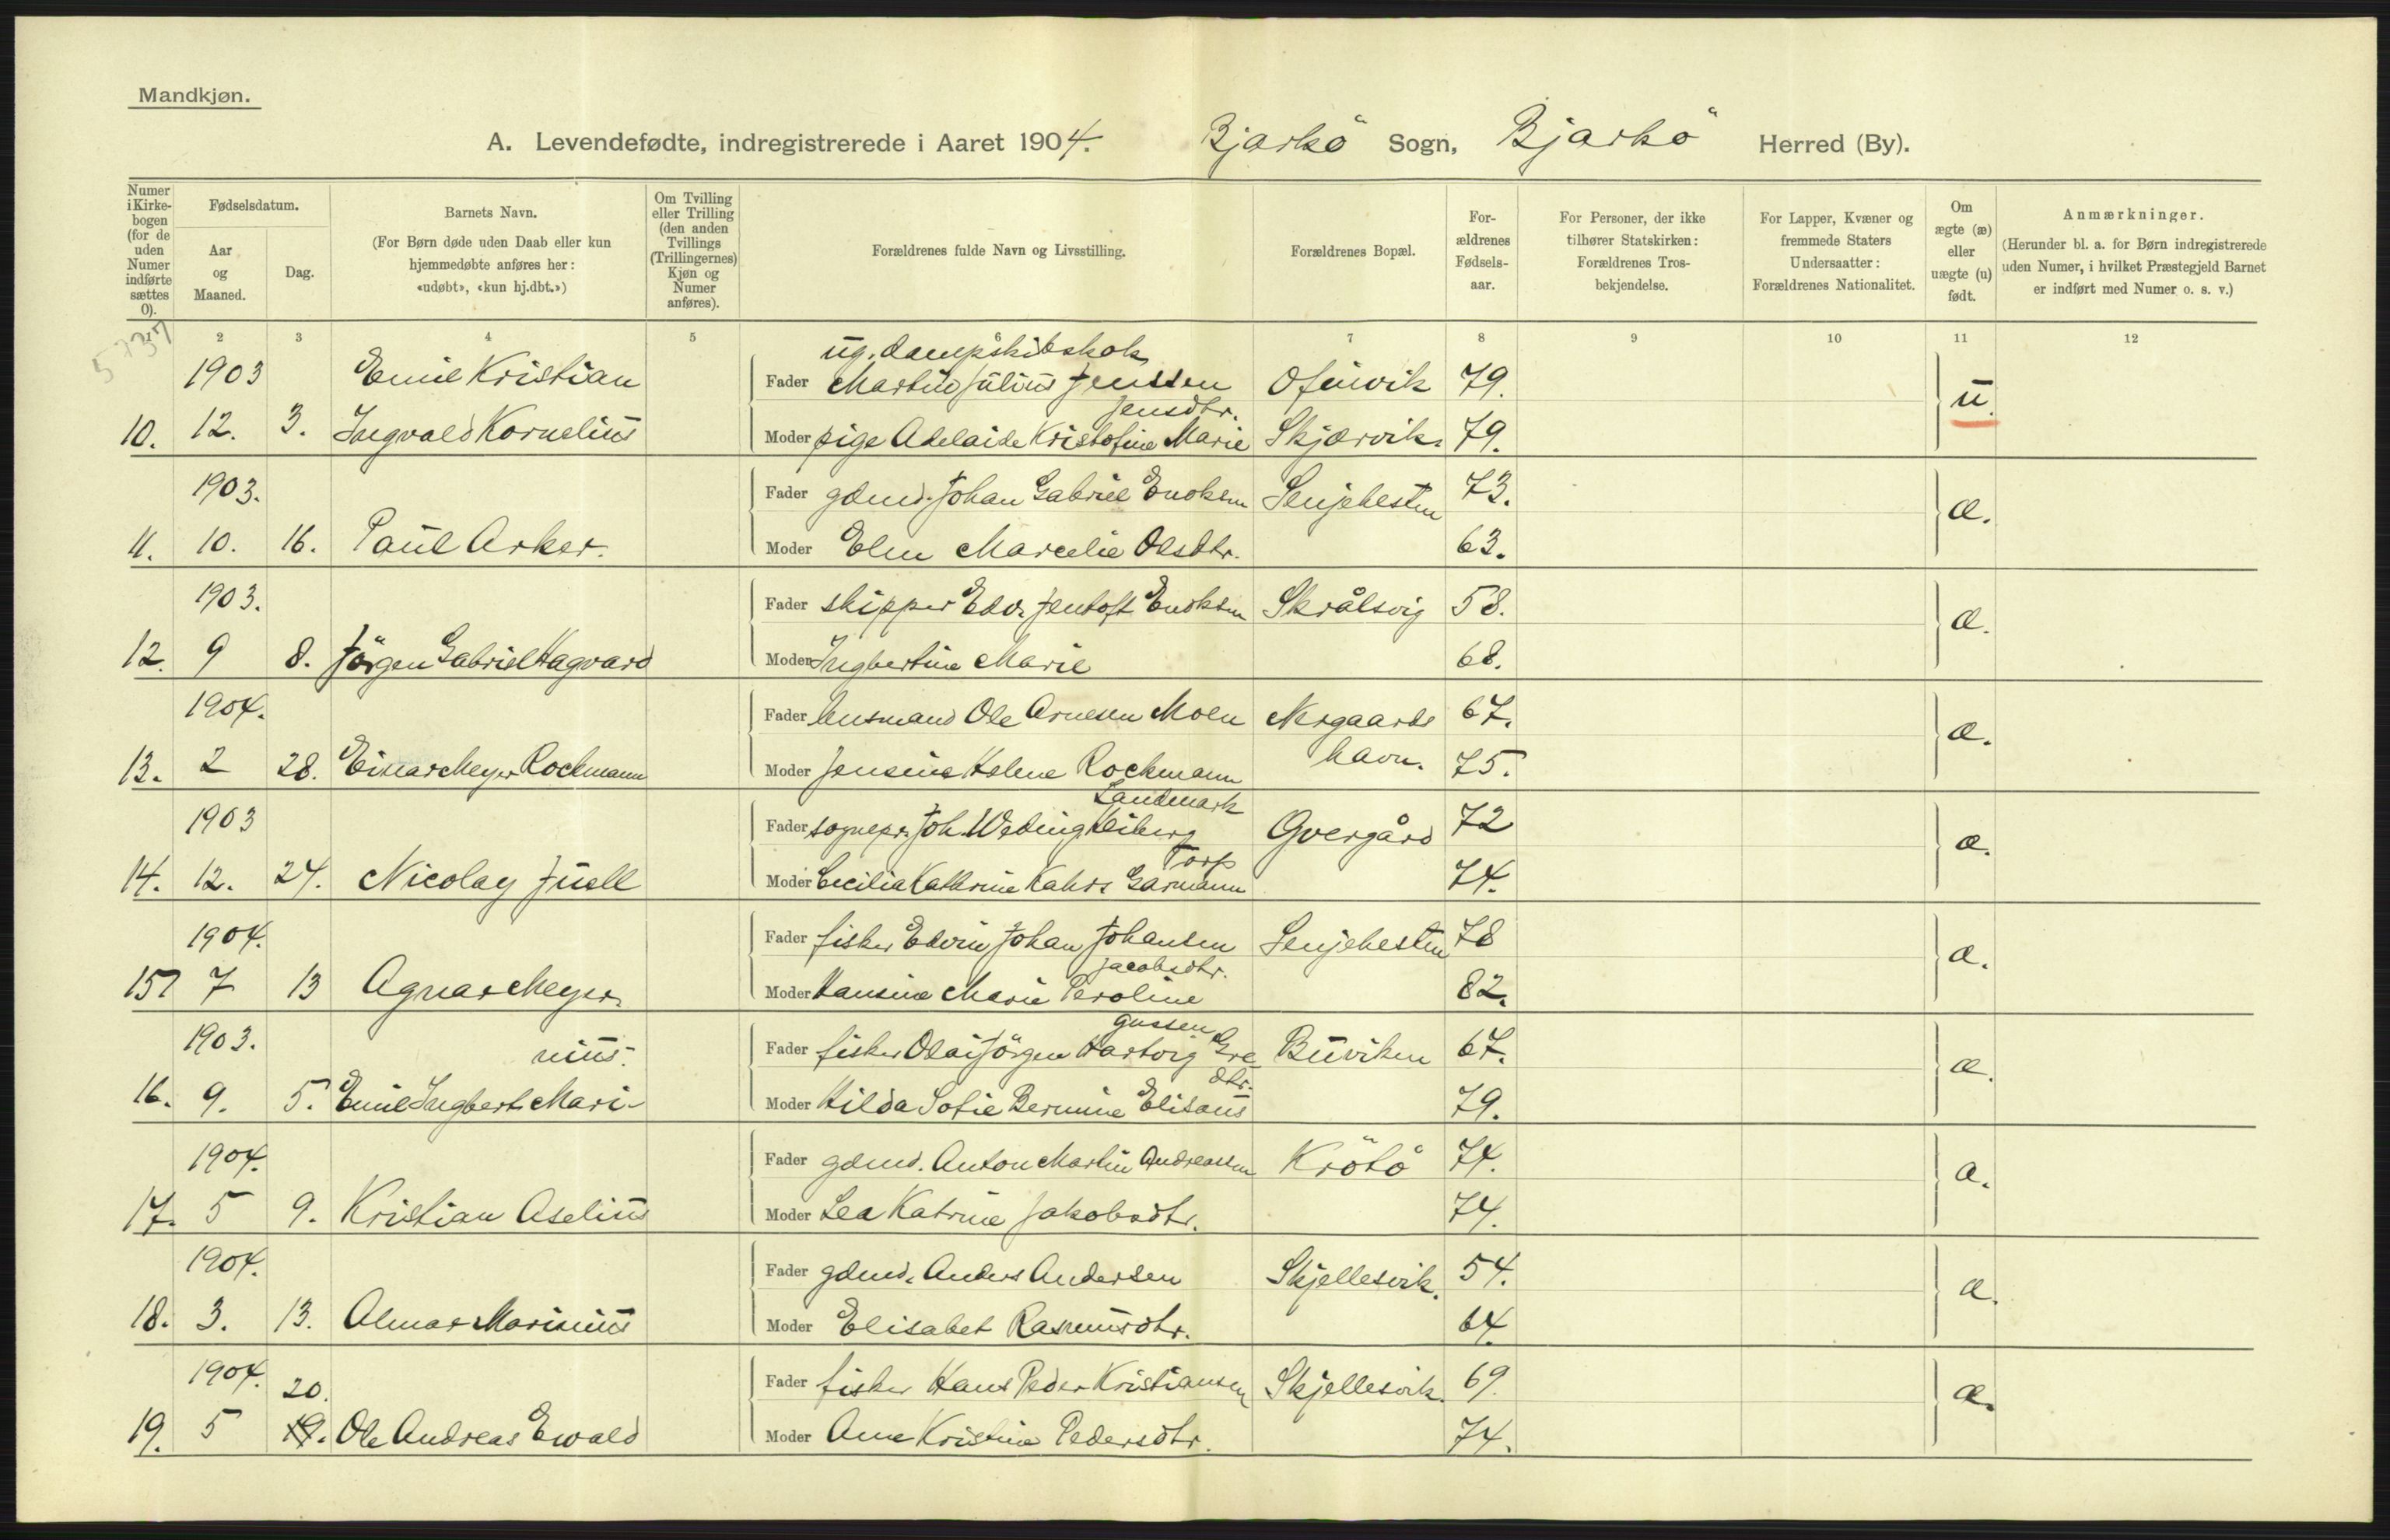 Mandkjøn.
A. Levendefødte, indregistrerede i Aaret 1904. Bjarkö Sogn, Bjarkö Herred (By).
Numer i Kirke-bogen (for de uden Numer indførte sættes 0).
Fødselsdatum.
Aar og Maaned.
Dag.
Barnets Navn.
(For Børn døde uden Daab eller kun hjemmedøbte anføres her: «udøbt», «kun hj.dbt.»)
Om Tvilling eller Trilling (den anden Tvillings (Trillingernes) Kjøn og Numer anføres).
Forældrenes fulde Navn og Livsstilling.
Forældrenes Bopæl.
For-ældrenes Fødsels-aar.
For Personer, der ikke tilhører Statskirken: Forældrenes Tros-bekjendelse.
For Lapper, Kvæner og fremmede Staters Undersaatter: Forældrenes Nationalitet.
Om ægte (æ) eller uægte (u) født.
Anmærkninger.
(Herunder bl. a. for Børn indregistrerede uden Numer, i hvilket Præstegjeld Barnet er indført med Numer o. s. v.)
2 3 4 5 6 7 8 9 10 11 12
ug. dampskibskok
1903 Emil Kristian Fader Martin Julius Jenssen 79. u.
Jensdtr.
10. 12. 3. Ingvald Kornelius Moder pige Adelaide Kristofine Marie Skjærvik. 79.
1903. Fader gdmd. Johan Gabriel Enoksen Senjehesten 73. æ.
11. 10. 16. Paul Asker. Moder Elen Marcelie Olsdtr. 63.
1903. Fader skipper Edv. Jentoft Enoksen Skrålsvig 58. æ.
12. 9 8. Jörgen Gabriel Hagvard Moder Ingbertine Marie 68.
1904. Fader lensmand Ole Arnesen Moen Nergaards 67. æ.
13. 2 28. Einar Meyer Rockmann Moder Jensine Helene Rockmann havn. 75.
Landmark
1903 Fader sognepr. Joh. Weding Heiberg Gvergård 72 æ.
Torp
14. 12. 24. Nicolay Juell Moder Cecilia Kathrine Kahrs Garmann 74.
1904. Fader fisker Edvin Johan Johansen Senjehesten 78 æ.
Jacobsdtr.
15. 7 13 Agnar Meyer. Moder Hansine Marie Peroline 82.
gussen
1903. nius. Fader fisker Olai Jörgen Hartvig Gre Buviken 67. æ.
dtr.
16. 9. 5. Emil Ingbert Mari- Moder Hilda Sofie Bernine Elisæus 79.
1904. Fader gdmd. Anton Martin Andreassen Krötö 74. æ.
17. 5 9. Kristian Aselius Moder Lea Katrine Jakobsdtr. 74.
1904. Fader gdmd. Anders Andersen Skjellesvik. 54. æ.
18. 3. 13. Almar Marinius Moder Elisabet Rasmusdtr. 64
1904. 20. Fader fisker Hans Peder Kristiansen Skjellesvik. 69. æ.
19. 5 19. Ole Andreas Ewald Moder Ane Kristine Pedersdtr. 74.